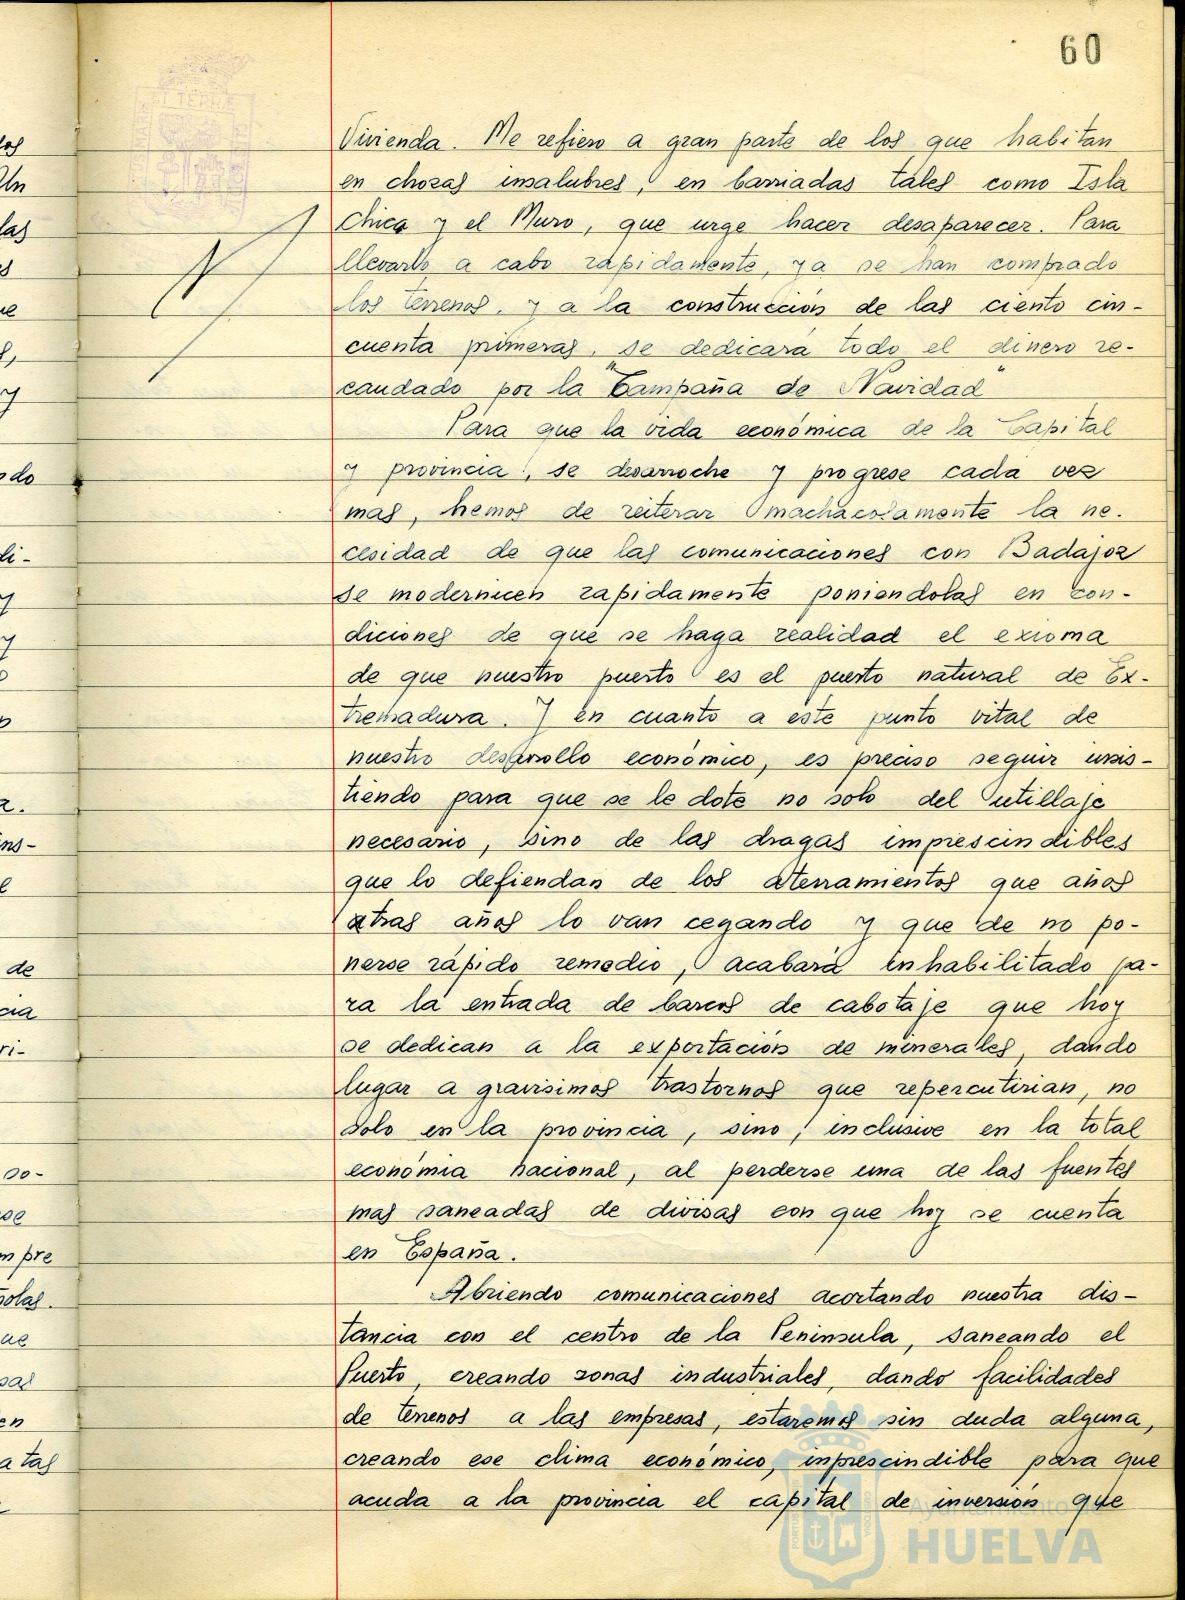 60
Vivienda. Me refiero a gran parte de los que habitan
en chozas insalubres, en barriadas tales como Isla
Chica y el Muro, que urge hacer desaparecer. Para
llevarlo a cabo rapidamente, ya se han comprado
los terrenos, y a la construcción de las ciento cin-
cuenta primeras, se dedicará todo el dinero re-
caudado por la "Campaña de Navidad"
Para que la vida económica de la Capital
y provincia, se desarroche y progrese cada vez
mas, hemos de reiterar machacolamente la ne-
cesidad de que las comunicaciones con Badajoz
se modernicen rapidamente poniendolas en con-
diciones de que se haga realidad el exioma
de que nuestro puerto es el puerto natural de Ex-
tremadura. Y en cuanto a este punto vital de
nuestro desarrollo económico, es preciso seguir insis-
tiendo para que se le dote no solo del utillaje
necesario, sino de las dragas imprescindibles
que lo defiendan de los aterramientos que años
atras años lo van cegando y que de no po-
nerse rápido remedio, acabará inhabilitado pa-
ra la entrada de barcos de cabotaje que hoy
se dedican a la exportación de minerales, dando
lugar a gravisimos trastornos que repercutirian, no
solo en la provincia, sino, inclusive en la total
económia nacional, al perderse una de las fuentes
mas saneadas de divisas con que hoy se cuenta
en España.
Abriendo comunicaciones acortando nuestra dis-
tancia con el centro de la Peninsula, saneando el
Puerto, creando zonas industriales, dando facilidades
de terrenos a las empresas, estaremos sin duda alguna,
creando ese clima económico, inprescindible para que
acuda a la provincia el capital de inversión que
Ayuntamiento de
HUELVA